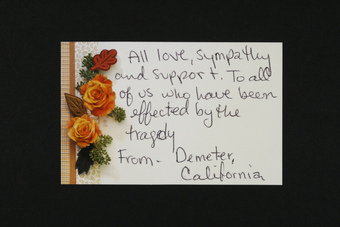 All love, sympathy
and support. To all
of us who have been
effected by the
tragedy
From - Demeter,
California